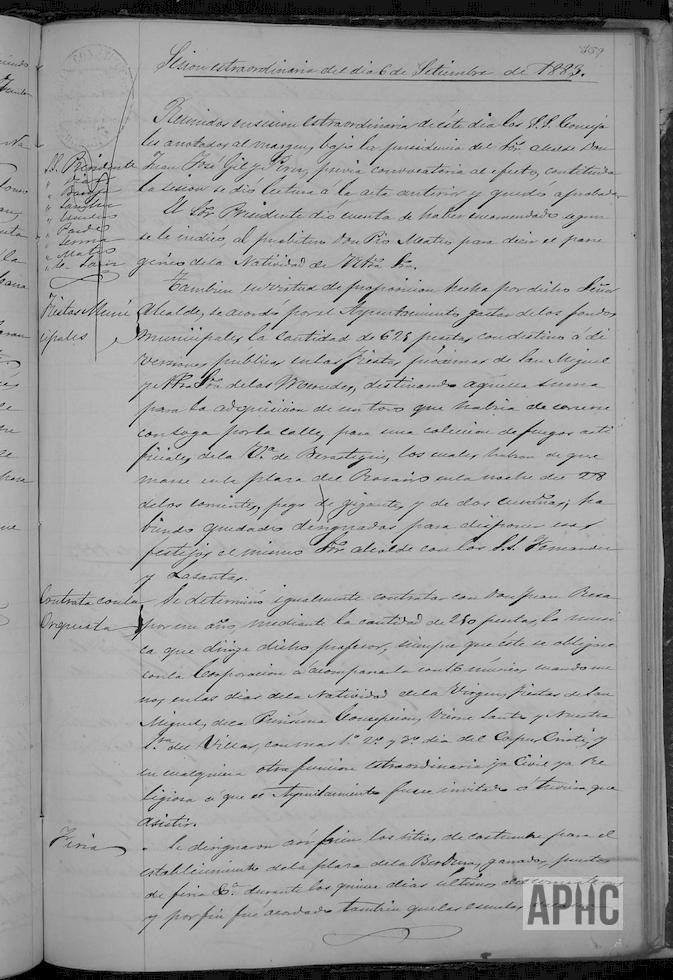 159
Sesion estraordinaria del dia 6 de Setiembre de 1883.
Reunidos en sesion estraordinaria de éste dia los S.S. Conceja
les anotados al margen, bajo la presidencia del Sor alcalde Don
Juan José Gil y , previa convocatoria al efecto, constituida
la sesion se dio lectura á la acta anterior y quedó aprobada
SS. Presidente
"
"
"
"
" Pardo
" Serma
" Mateo
"
El Sor Presidente dio cuenta de haber encomendado segun
se le indicó, al presbitero Don Pio Mateo para decir el pane
girico de la Natividad de Ntra Sra.
Fiestas Muni
cipales
Tambien en virtud de proposicion hecha por dicho Señor
Alcalde, se acordó por el Ayuntamiento gastar de los fondos
municipales la cantidad de 625 pesetas con destino á di
versiones publicas en las fiestas próximas de San Miguel
y Ntra Sra de las Mercedes, destinando aquella suma
para la adquisicion de un toro que habria de correrse
con soga por la calle, para una colección de fuegos arti
ficiales de la Vda de , los cuales habran de que
marse en la plaza del Rosario en la noche del 28
de los corrientes, pago de gigantes y de dos ; ha
biendo quedado designados para disponer esos
festejos el mismo Sor alcalde con los S.S. Fernandez
y Lasanta.
Contrata con la
Orquesta
Se determinó igualmente contratar con Don Juan
por un año, mediante la cantidad de 250 pesetas la musi
ca que dirige dicho profesor, siempre que éste se obligue
con la Corporacion á acompañarla con 16 músicos cuando me
nos, en los dias de la Natividad de la Virgen, fiestas de San
Miguel, de la Purisima Concepcion, Viernes Santo y Nuestra
Sra del Villar, con mas 1º 2º y 3º dia del Corpus Cristi, y
en cualquiera otra funcion estraordinaria ya Civil ya Re
ligiosa á que el Ayuntamiento fuese invitado ó tuviera que
asistir.
Feria
Se designaron asi bien los sitios de costumbre para el
establecimiento de la plaza de la , ganado, puestos
de feria &a durante los quince dias ultimos del
y por fin fué acordado tambien que las escuelas
APHC